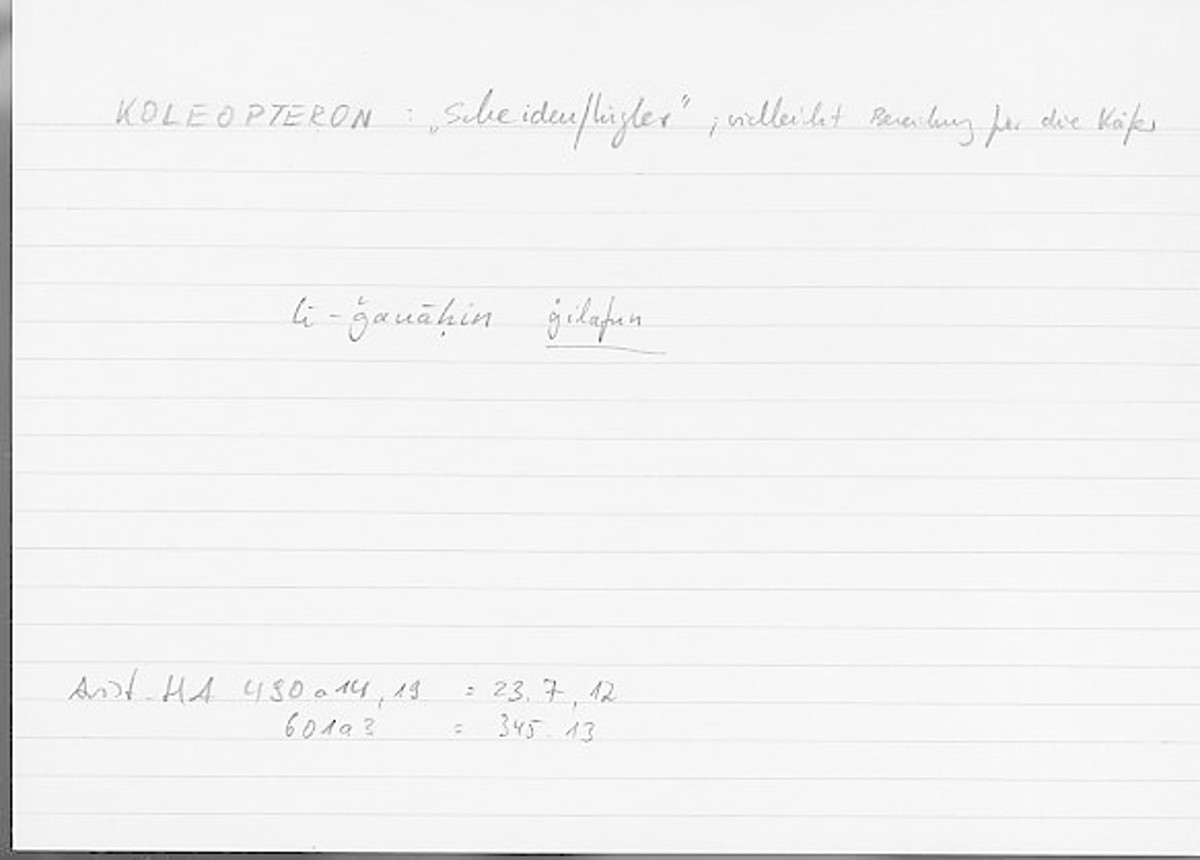 KOLEOPTERON : „Scheidenflügler" ; vielleicht für die Käfer
li-ǧanāḥin ġilāfun
Arist. HA 490 a 14, 19 = 23. 7, 12
601 a 3 = 345. 13